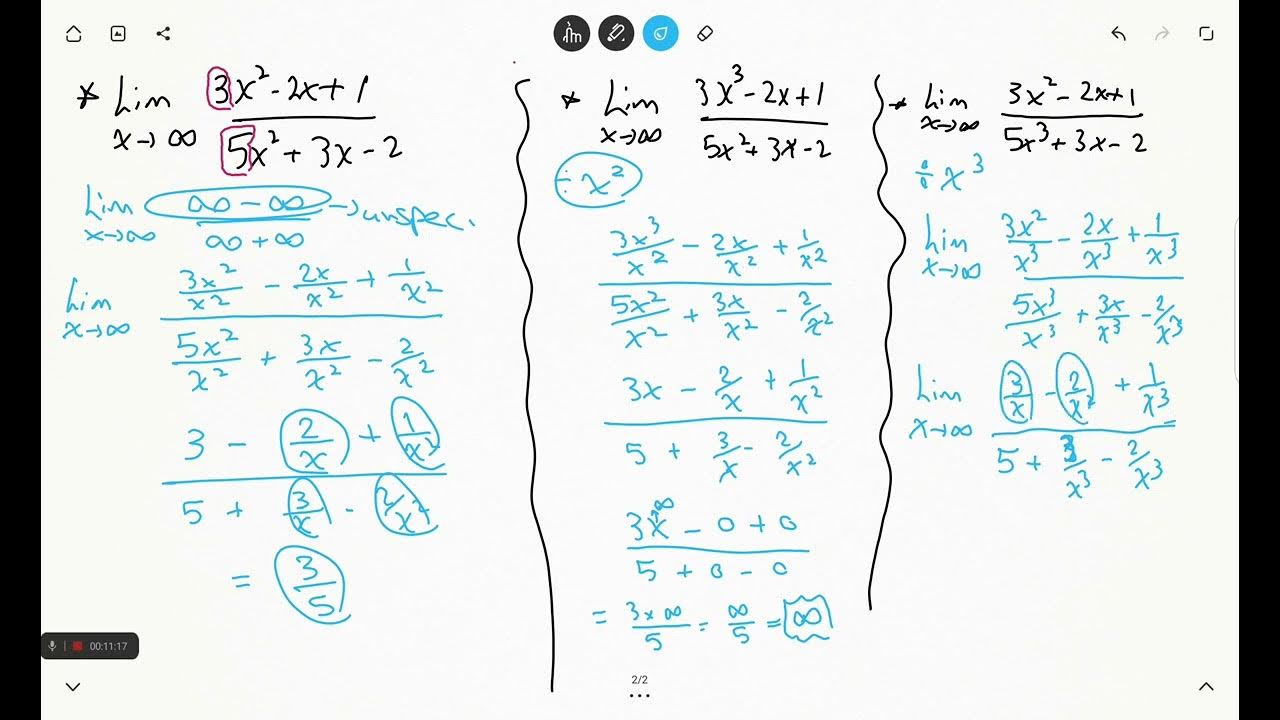 * Lim x→∞ (3x² - 2x + 1) / (5x² + 3x - 2)
Lim x→∞ (∞ - ∞) / (∞ + ∞) → unspec.
Lim x→∞ (3x²/x² - 2x/x² + 1/x²) / (5x²/x² + 3x/x² - 2/x²)
(3 - 2/x + 1/x²) / (5 + 3/x - 2/x²)
= 3/5
* Lim x→∞ (3x³ - 2x + 1) / (5x² + 3x - 2)
÷ x²
(3x³/x² - 2x/x² + 1/x²) / (5x²/x² + 3x/x² - 2/x²)
(3x - 2/x + 1/x²) / (5 + 3/x - 2/x²)
∞
(3x - 0 + 0) / (5 + 0 - 0)
= 3×∞/5 = ∞/5 = ∞
* Lim x→∞ (3x² - 2x + 1) / (5x³ + 3x - 2)
÷ x³
Lim x→∞ (3x²/x³ - 2x/x³ + 1/x³) / (5x³/x³ + 3x/x³ - 2/x³)
Lim x→∞ (3/x - 2/x² + 1/x³) / (5 + 3/x³ - 2/x³)
00:11:17
2/2